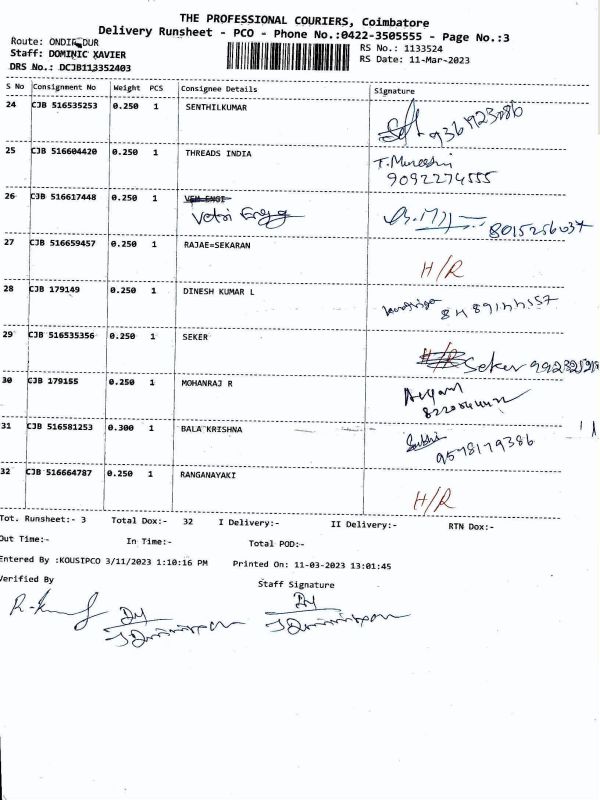 THE PROFESSIONAL COURIERS, Coimbatore
Delivery Runsheet - PCO - Phone No.:0422-3505555 - Page No.:3
Route: ONDIPUDUR
Staff: DOMINIC XAVIER
DRS No.: DCJB113352403
RS No.: 1133524
RS Date: 11-Mar-2023
S No Consignment No Weight PCS Consignee Details Signature
24 CJB 516535253 0.250 1 SENTHILKUMAR
25 CJB 516604420 0.250 1 THREADS INDIA
9092274555
26 CJB 516617448 0.250 1 VEM ENGI
Vetri Engg 8015256037
27 CJB 516659457 0.250 1 RAJAE=SEKARAN
H/R
28 CJB 179149 0.250 1 DINESH KUMAR L
29 CJB 516535356 0.250 1 SEKER
H/R Seker
30 CJB 179155 0.250 1 MOHANRAJ R
31 CJB 516581253 0.300 1 BALA KRISHNA
9578179386
32 CJB 516664787 0.250 1 RANGANAYAKI
H/R
Tot. Runsheet:- 3 Total Dox:- 32 I Delivery:- II Delivery:- RTN Dox:-
Out Time:- In Time:- Total POD:-
Entered By :KOUSIPCO 3/11/2023 1:10:16 PM Printed On: 11-03-2023 13:01:45
Verified By Staff Signature